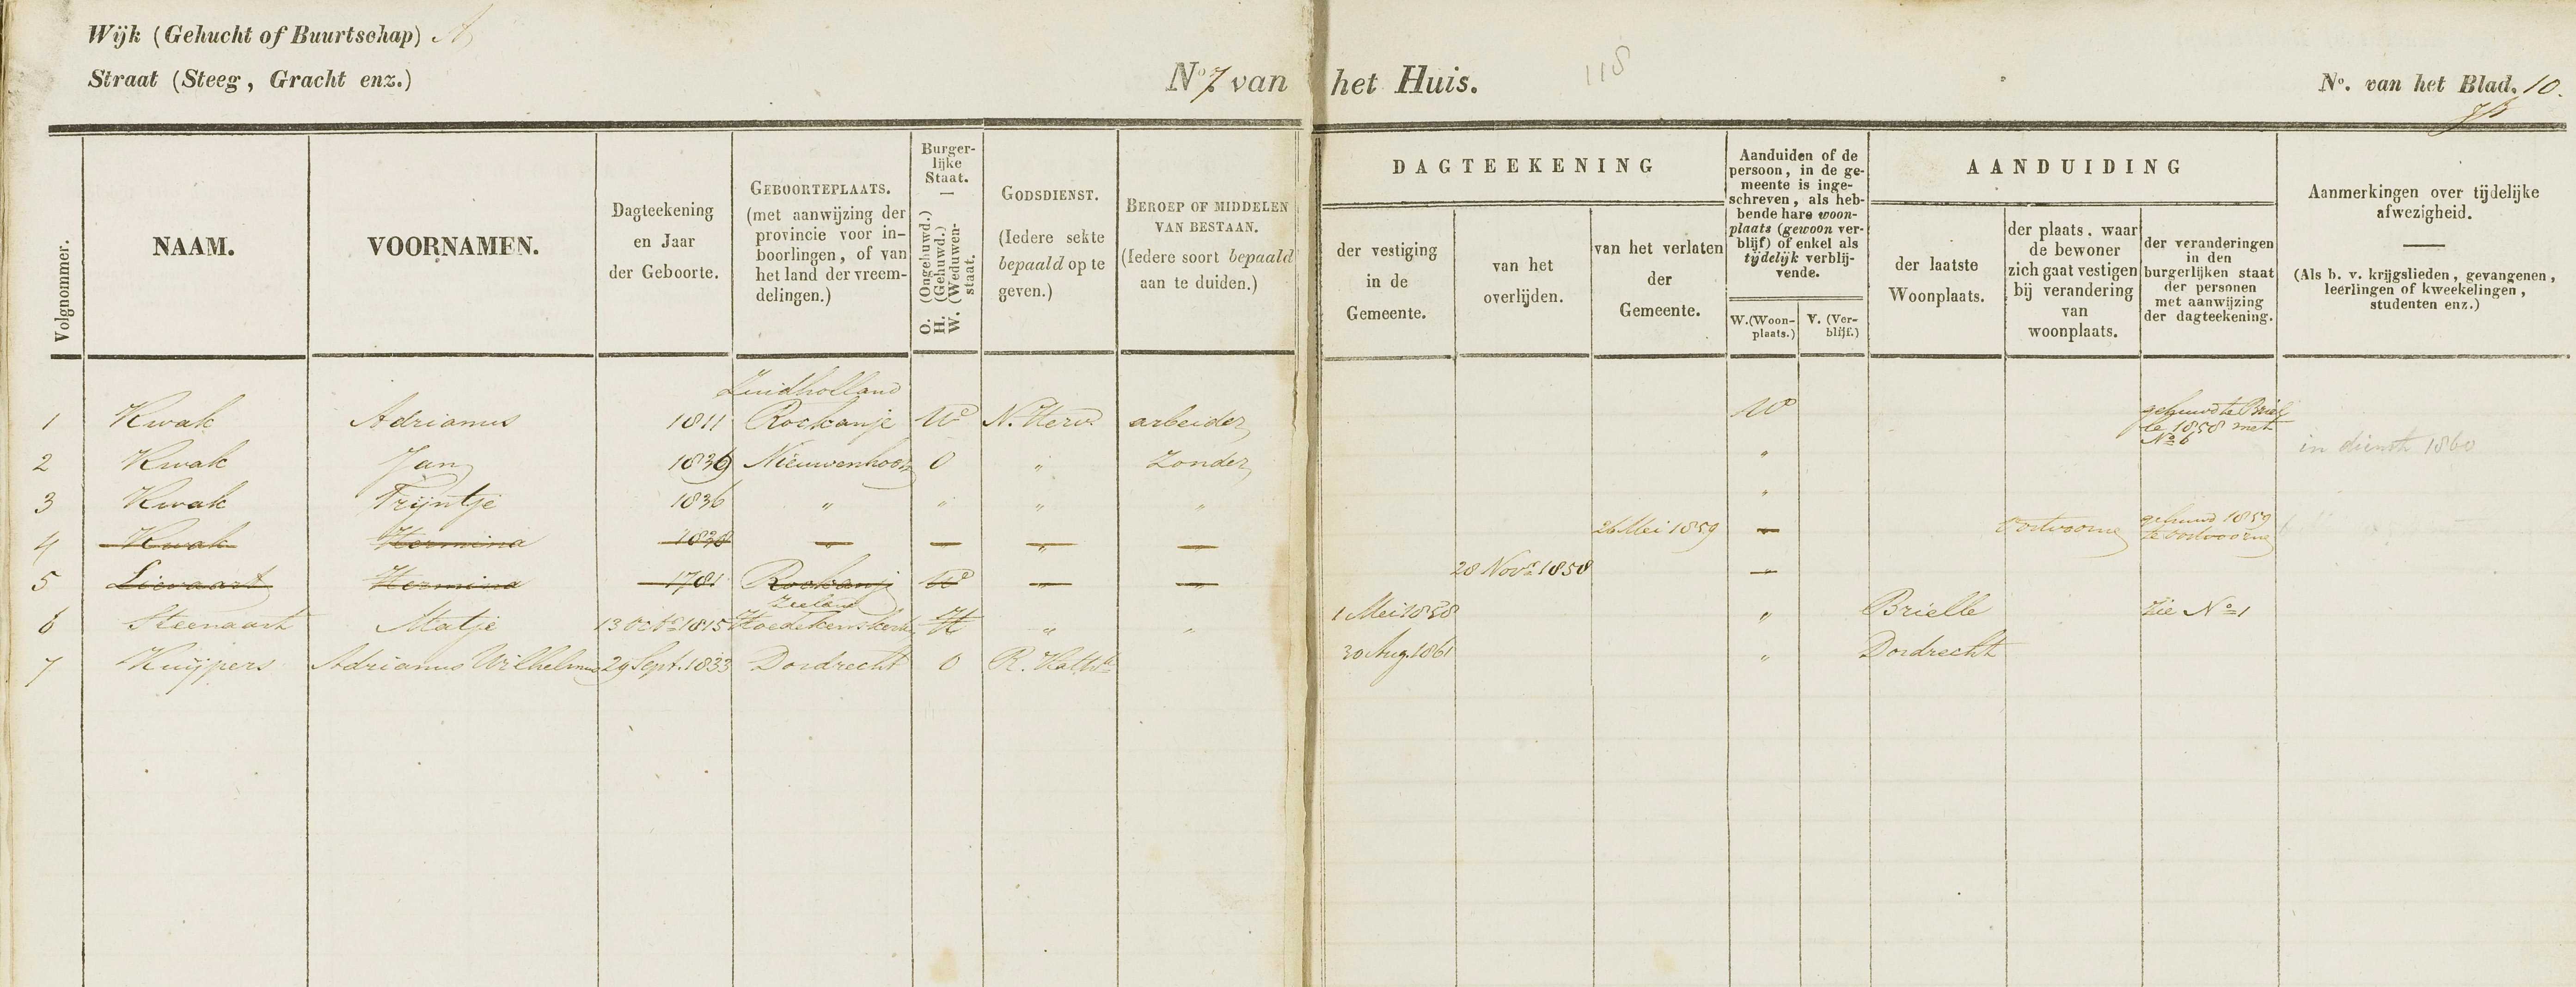 Wijk (Gehucht of Buurtschap) A
Straat (Steeg, Gracht enz.)
No 7 van het Huis.
118
No. van het Blad. 10.
Volgnommer.
NAAM.
VOORNAMEN.
Dagteekening
en Jaar
der Geboorte.
GEBOORTEPLAATS.
(met aanwijzing der
provincie voor in-
boorlingen, of van
het land der vreem-
delingen.)
Burger-
lijke
Staat.
O. (Ongehuwd.)
H. (Gehuwd.)
W. (Weduwen-
staat.
GODSDIENST.
(Iedere sekte
bepaald op te
geven.)
BEROEP OF MIDDELEN
VAN BESTAAN.
(Iedere soort bepaald
aan te duiden.)
DAGTEEKENING
der vestiging
in de
Gemeente.
van het
overlijden.
van het verlaten
der
Gemeente.
Aanduiden of de
persoon, in de ge-
meente is inge-
schreven, als heb-
bende hare woon-
plaats (gewoon ver-
blijf) of enkel als
tijdelijk verblij-
vende.
W. (Woon-
plaats.)
V. (Ver-
blijf.)
AANDUIDING
der laatste
Woonplaats.
der plaats. waar
de bewoner
zich gaat vestigen
bij verandering
van
woonplaats.
der veranderingen
in den
burgerlijken staat
der personen
met aanwijzing
der dagteekening.
Aanmerkingen over tijdelijke
afwezigheid.
(Als b. v. krijgslieden, gevangenen,
leerlingen of kweekelingen,
studenten enz.)
Zuidholland
1 Kwak Adrianus 1811 Rockanje Wd N. Herv. arbeider W gehuwd te Briel
le 1858 met
No 6
2 Kwak Jan 1839 Nieuwenhoorn O " Zonder " in dienst 1860
3 Kwak Trijntje 1836 " " " " "
4 Kwak Hermina 1838 " 26 Mei 1859 Oostvoorne gehuwd 1859
te Oostvoorne
5 Lievaart Hermina 1781 Rockanje Wd 28 Novr 1858
Zeeland
6 Steenaart Matje 13 Octr 1815 Hoedekenskerke H " " 1 Mei 1858 " Brielle Zie No 1
7 Kuijpers Adrianus Wilhelmus 29 Sept. 1833 Dordrecht O R. Kath. 30 Aug. 1861 " Dordrecht